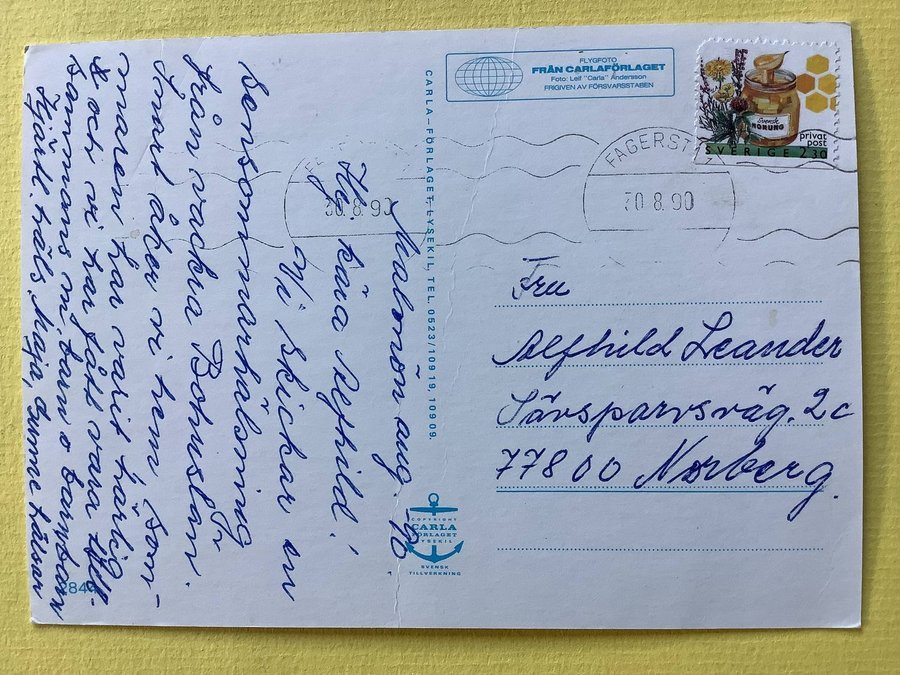 Malmön aug. -90
Hej kära Alfhild!
Vi skickar en
sensommarhälsning
från vackra Bohuslän.
Snart åker vi hem. Som-
maren har varit härlig
& att vi har fått vara till-
sammans m. barn o barnbarn
Hjärtl. häls. Maja, Gunne hälsar
2844
CARLA-FÖRLAGET, LYSEKIL, TEL. 0523/109 19, 109 09.
FLYGFOTO
FRÅN CARLAFÖRLAGET
Foto: Leif "Carla" Andersson
FRIGIVEN AV FÖRSVARSSTABEN
Svensk
HONUNG
privat
post
SVERIGE 2.30
FAGERST
30.8.90
30.8.90
Fru
Alfhild Leander
Sävsparvsväg. 2c
77800 Norberg.
COPYRIGHT
CARLA
FÖRLAGET
LYSEKIL
SVENSK
TILLVERKNING